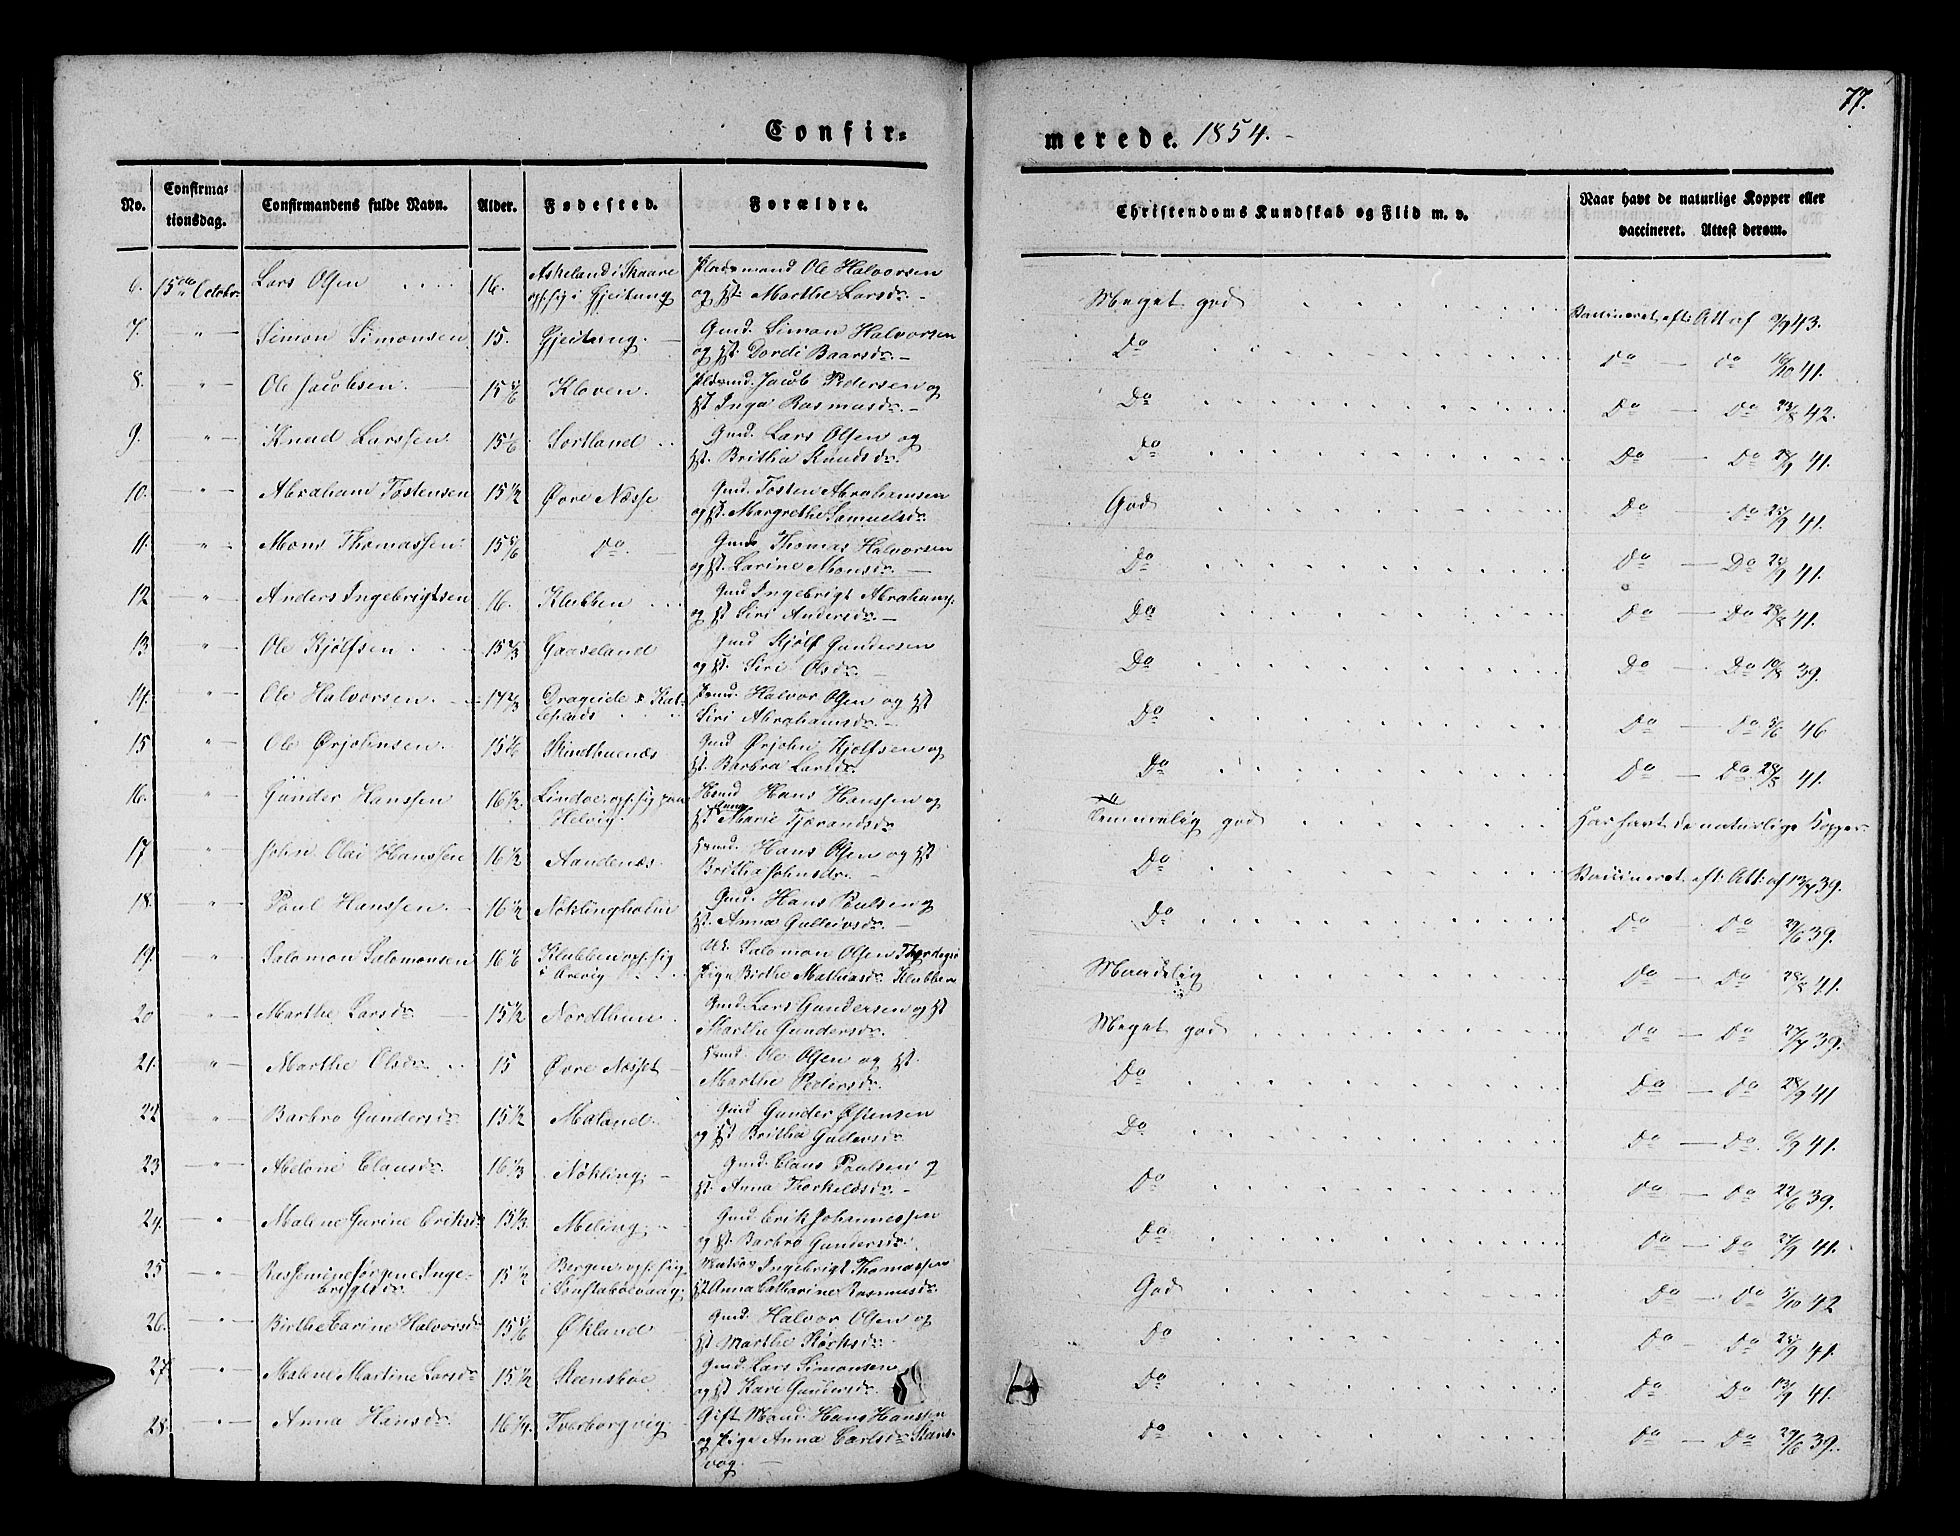 77.
Confir-
merede. 1854.
No.
Confirma-
tionsdag.
Confirmandens fulde Navn.
Alder.
Fødested.
Forældre.
Christendoms Kundskab og Flid m. v.
Naar havt de naturlige Kopper eller
vaccineret. Attest derom.
6. 15de Octobr. Lars Olsen 16. Askeland i Skaare Pladsmand Ole Halvorsen
opf. sig i Gjeitung og Hst. Marthe Larsdr. Meget god Vaccineret eft: Att af 9/9 43.
7. " Simon Simonsen 15. Gjeitung Gmd. Simon Halvorsen
og Hst. Dordi Baarsdr. Do Do Do 10/10 41.
8. " Ole Jacobsen 15 5/6 Kloven. Pladsmd. Jacob Pedersen og
Hst Inga Rasmusdr. Do Do Do 23/8 42.
9. " Knud Larssen 15 1/6 Sortland Gmd. Lars Olsen og
Hst. Britha Knudsdr. Do Do Do 41.
10. " Abraham Tostensen 15 1/2 Øvre Næsse Gmd. Tosten Abrahamsen
og Hst. Margrethe Samuelsdr. God Do Do 25/9 41.
11. " Mons Thomassen 15 5/6 Do Gmd Thomas Halvorsen
og Hst. Larine Monsdr. Do Do Do 41.
12 " Anders Ingebrigtsen 16. Klubben Gmd Ingebrigt Abrahams.
og Hst Siri Andersdr. Do Do Do 28/8 41.
13 " Ole Kjølfsen 15 2/3 Gaaseland Gmd Kjølf Gundersen
og Hst. Siri Olsdr. Do Do Do 10/8 39.
14. " Ole Halvorsen 14 2/3 Drageide Halvor Olsen og Hst
Siri Abrahamsdr. Do Do Do 5/6 46
15 " Ole Ørjohnsen 15 1/6 Skindbuenæs Gmd Ørjohn Kjølfsen og
Hst. Barbra Larsdr. Do Do Do 28/8 41.
16. " Gunder Hanssen 16 1/2. Lindøe, opf. sig paa Hans Hanssen og
Helvig. Hst Marie Tjærandsdr. Temmelig god Har havt de naturlige Kopper
17 " John Olai Hanssen 16 1/2 Aandenæs Hans Olsen og Hst
Britha Johnsdr. Do Vaccineret eft: Att: af 13/7 39.
18. " Poul Hanssen 16 1/2 Nøklingholm Gmd. Hans Poulsen og
Hst. Anna Gulleivsdr. Do Do Do 29/6 39.
19. " Salomon Salomonsen 16 1/6 Klubben opf. sig Salomon Olsen
i Arevig Pige Birthe Mathiasdr. Klubben Maadelig Do Do 28/8 41.
20 " Marthe Larsdr. 15 1/2 Nordthun Gmd. Lars Gundersen og Hst
Marthe Gundersdr. Meget god Do Do 27/7 39.
21. " Marthe Olsdr. 15 Øvre Næsset Ole Olsen og Hst.
Marthe Pedersdr. Do Do Do 28/9 41
22 " Barbro Gundersdr 15 1/2 Maland. Gmd Gunder Østensen
og Hst Britha Gulleivsdr. Do Do Do 41.
23 " Abelone Clausdr. 16 1/3 Nökling Gmd. Claus Poulsen og
Hst. Anna Thorkildsdr. Do Do Do 22/6 39.
24. " Malene Gurine Eriksdr 15 1/3. Meling Gmd Erik Johannessen
og Hst. Barbro Gundersdr. Do Do Do 27/9 41.
25 " Rassemine Jørgine Inge- 15 1/2 Bergen, opf. sig Matros Ingebrigt Thomassen
brigtsdr i Konstabelvaag Hst Anna Catharine Rasmusdr. God Do Do 5/10 42
26. " Birthe Carine Halvorsdr 15 5/6 Økland Gmd. Halvor Olsen og
Hst Marthe Størksdr. Do Do Do 25/9 41.
27. " Malene Martine Larsdr 15 1/2 Steensbøe Gmd. Lars Simonsen
og Hst Kari Gundersdr. Do Do Do 13/9 41.
28. " Anna Hansdr. 16 1/4. Tverborgvig Gift Mand Hans Hanssen
og Pige Anna Carlsdr Do Do Do 29/6 39.